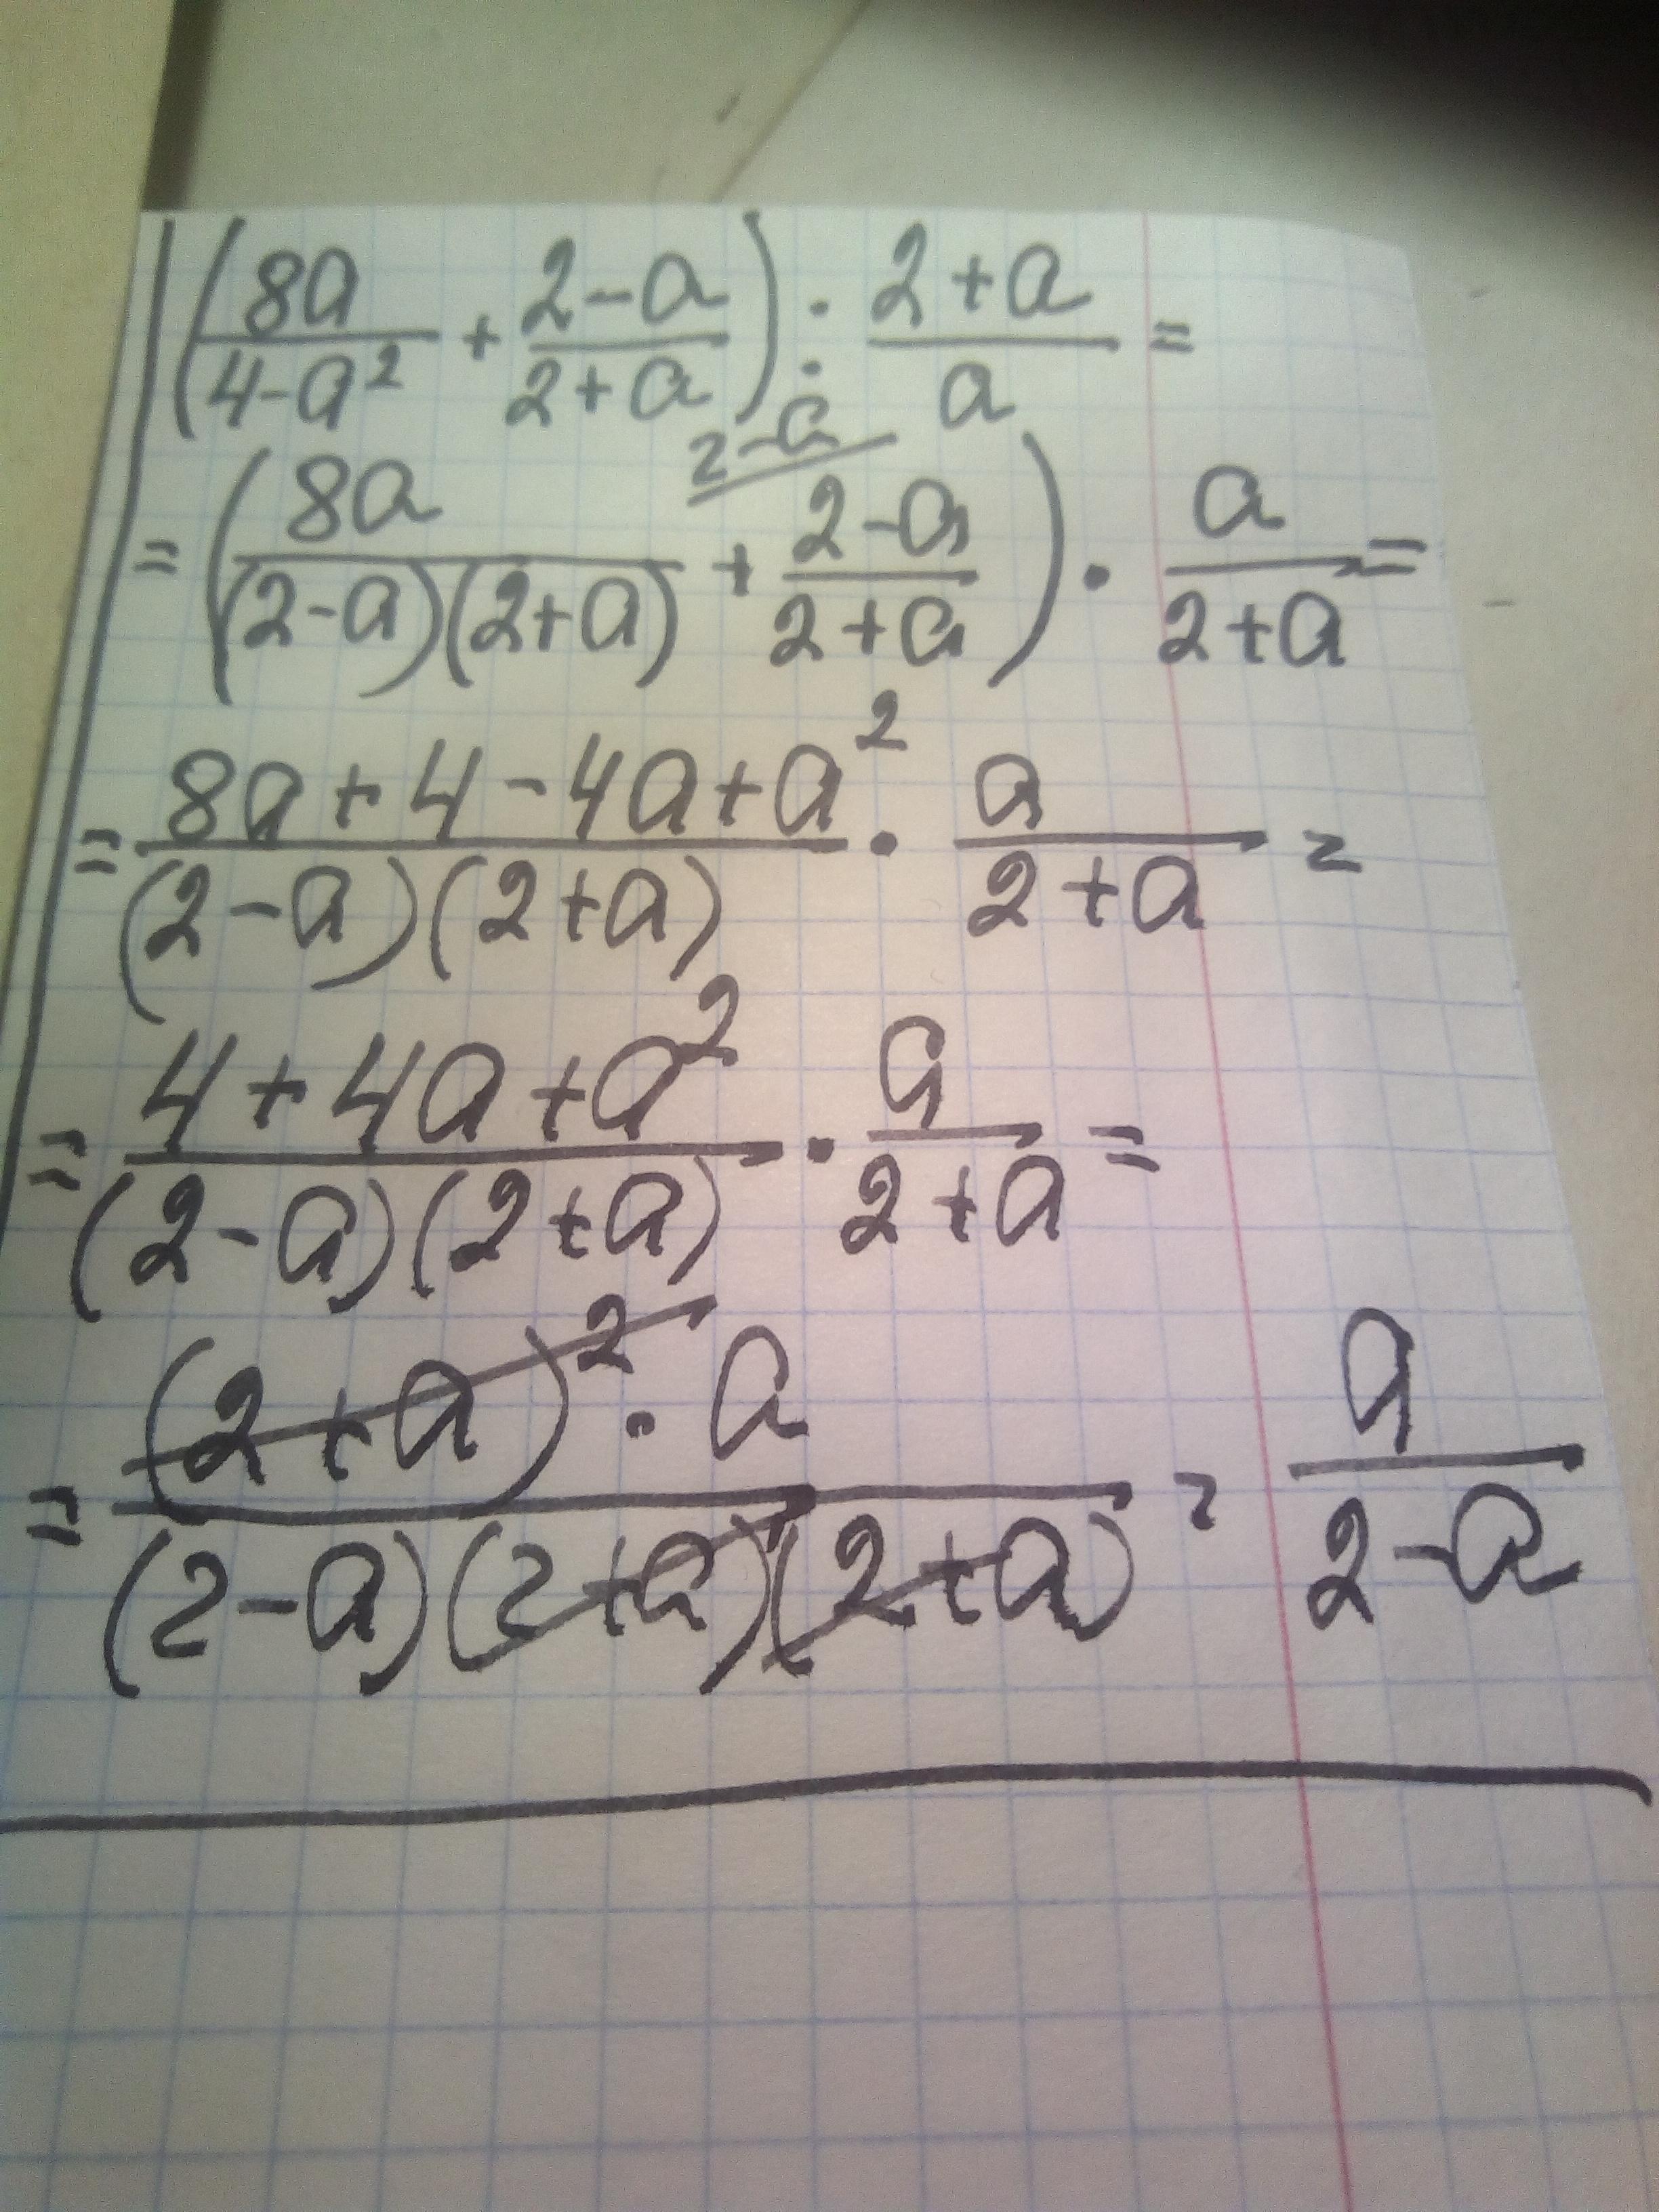 (8a/(4-a²) + (2-a)/(2+a)) : (2+a)/a =
2-a
= (8a/((2-a)(2+a)) + (2-a)/(2+a)) · a/(2+a) =
= (8a+4-4a+a²)/((2-a)(2+a)) · a/(2+a) =
= (4+4a+a²)/((2-a)(2+a)) · a/(2+a) =
= ((2+a)² · a)/((2-a)(2+a)(2+a)) = a/(2-a)